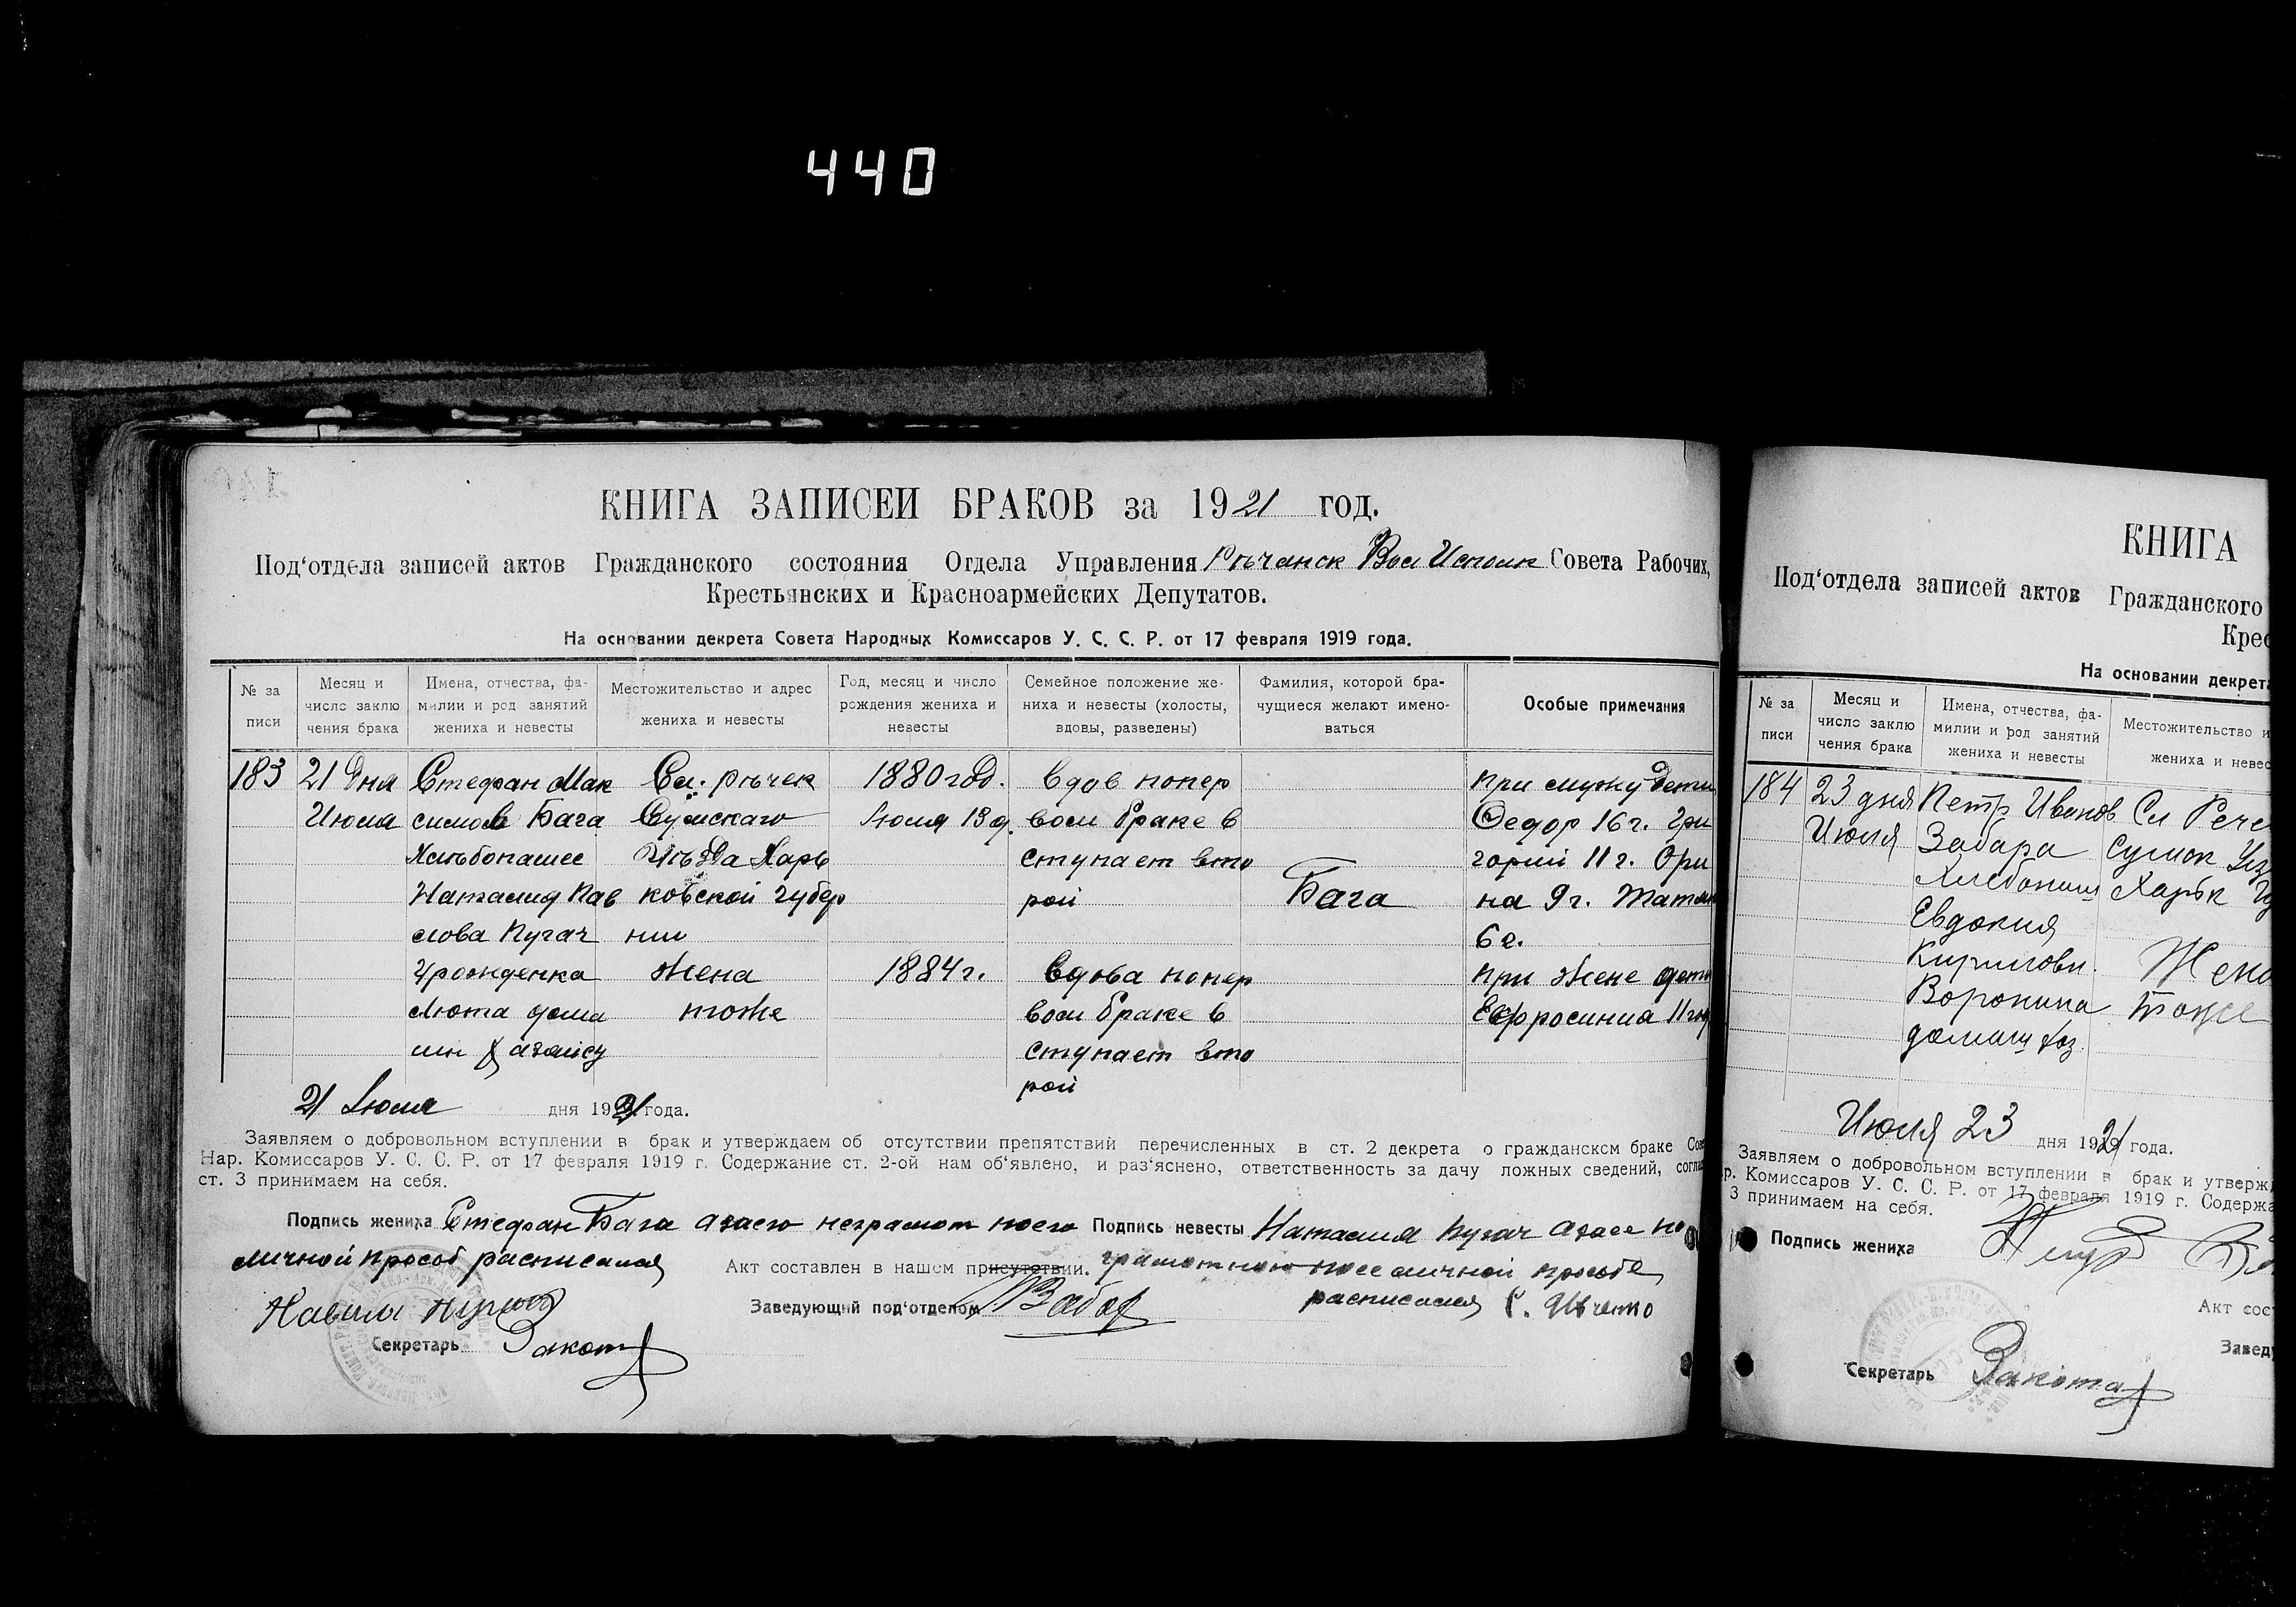 440
КНИГА ЗАПИСЕЙ БРАКОВ за 1921 год.
Под‘отдела записей актов Гражданского состояния Отдела Управления Рѣчанск Вол Исполк Совета Рабочих,
Крестьянских и Красноармейских Депутатов.
На основании декрета Совета Народных Комиссаров У. С. С. Р. от 17 февраля 1919 года.
№ за
писи
Месяц и
число заклю
чения брака
Имена, отчества, фа-
милии и род занятий
жениха и невесты
Местожительство и адрес
жениха и невесты
Год, месяц и число
рождения жениха и
невесты
Семейное положение же-
ниха и невесты (холосты,
вдовы, разведены)
Фамилия, которой бра-
чущиеся желают имено-
ваться
Особые примечания
183
21 Дня
Июля
Стефан Мак
симов Бага
Хлѣбопашес
Наталия Пав
лова Пугач
Урожденка
Люта дома
шн хазяйсу
Сл. Рѣчек
Сумскаго
Уѣзда Харь
ковской губер
нии
Жена
тоже
1880 год.
Июля 13 д.
1884 г.
Вдов попер
вом браке в
ступает вто
рой
Вдова попер
вом браке в
ступает вто
рой
Бага
При мужу дети
Федор 16 г. Гри
горий 11 г. Ори
на 9 г. Татьян
6 г.
При жене дети
Ефросиния 11 год
21 Июля дня 1921 года.
Заявляем о добровольном вступлении в брак и утверждаем об отсутствии препятствий перечисленных в ст. 2 декрета о гражданском браке Сове
Нар. Комиссаров У. С. С. Р. от 17 февраля 1919 г. Содержание ст. 2-ой нам об‘явлено, и раз‘яснено, ответственность за дачу ложных сведений, согла
ст. 3 принимаем на себя.
Подпись жениха Стефан Бага азаего неграмот ноего
личной прозоб расписалея
Подпись невесты Наталия Пугач азаее не
грамотною поее личной прозобе
расписалея С. Ивченко
Акт составлен в нашем присутствии.
Заведующий под‘отделом
Секретарь Закота
КНИГА
Под‘отдела записей актов Гражданского
Крес
На основании декрета
№ за
писи
Месяц и
число заклю
чения брака
Имена, отчества, фа-
милии и род занятий
жениха и невесты
Местожительство и
жениха и невес
184
23 дня
Июля
Петр Иванов
Забара
Хлебопаш
Евдокия
Кириловн.
Воронина
домаш хоз.
Сл Рече
Сумск Уез
Харьк Гу
Жена
тоже
Июля 23 дня 1921 года.
Заявляем о добровольном вступлении в брак и утверж
р. Комиссаров У. С. С. Р. от 17 февраля 1919 г. Содержа
3 принимаем на себя.
Подпись жениха
Акт сос
Завед
Секретарь Закота